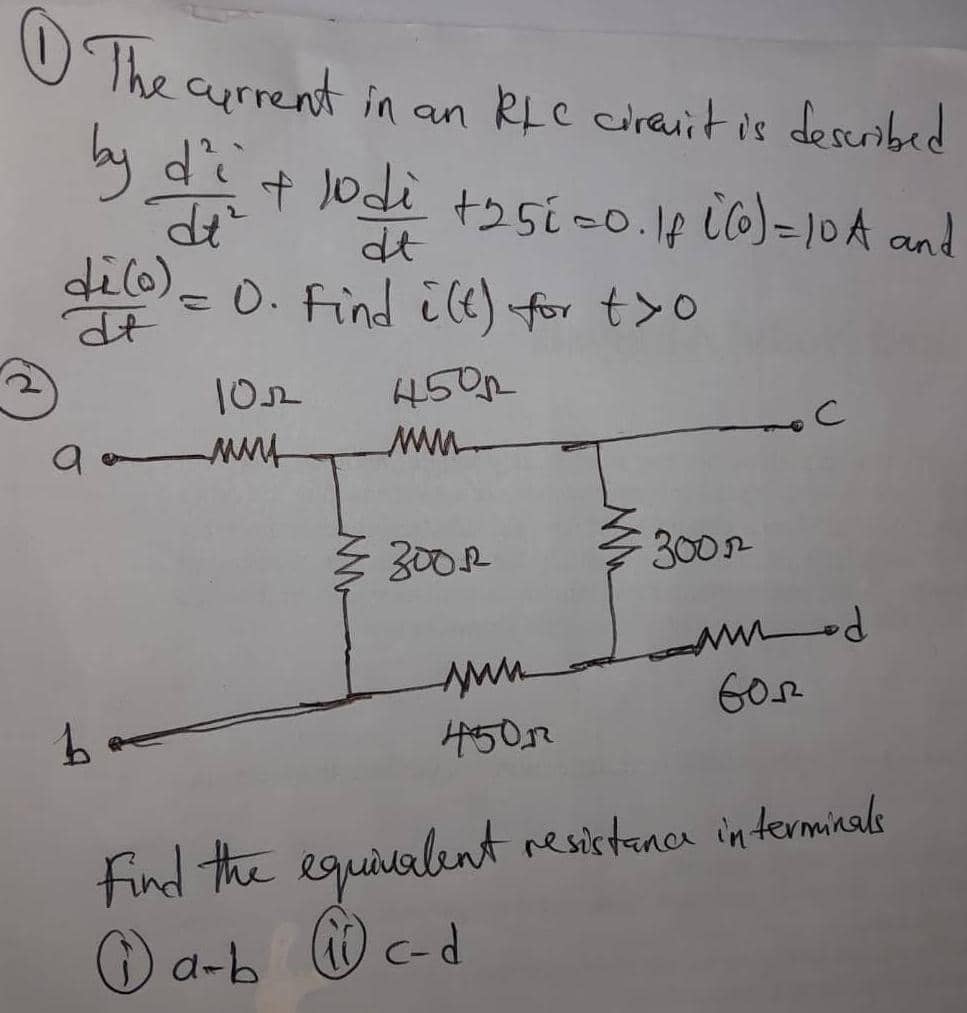 ① The current in an RLC circuit is described
by d²i/dt² + 10di/dt + 25i = 0. If i(0) = 10A and
di(0)/dt = 0. Find i(t) for t > 0
② 10Ω 450Ω
a c
300Ω 300Ω
d
60Ω
b 450Ω
Find the equivalent resistance in terminals
ⓘ a-b ⓘⓘ c-d